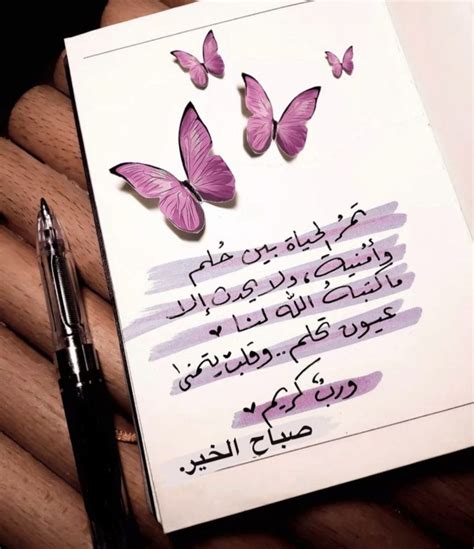 تمرُ الحياة بين حُلم
وأُمنية، ولا يحدث إلا
ماكتبهُ الله لنا
عيون تحلم.. وقلبٌ يتمنى
وربٌ كريم
صباح الخير.